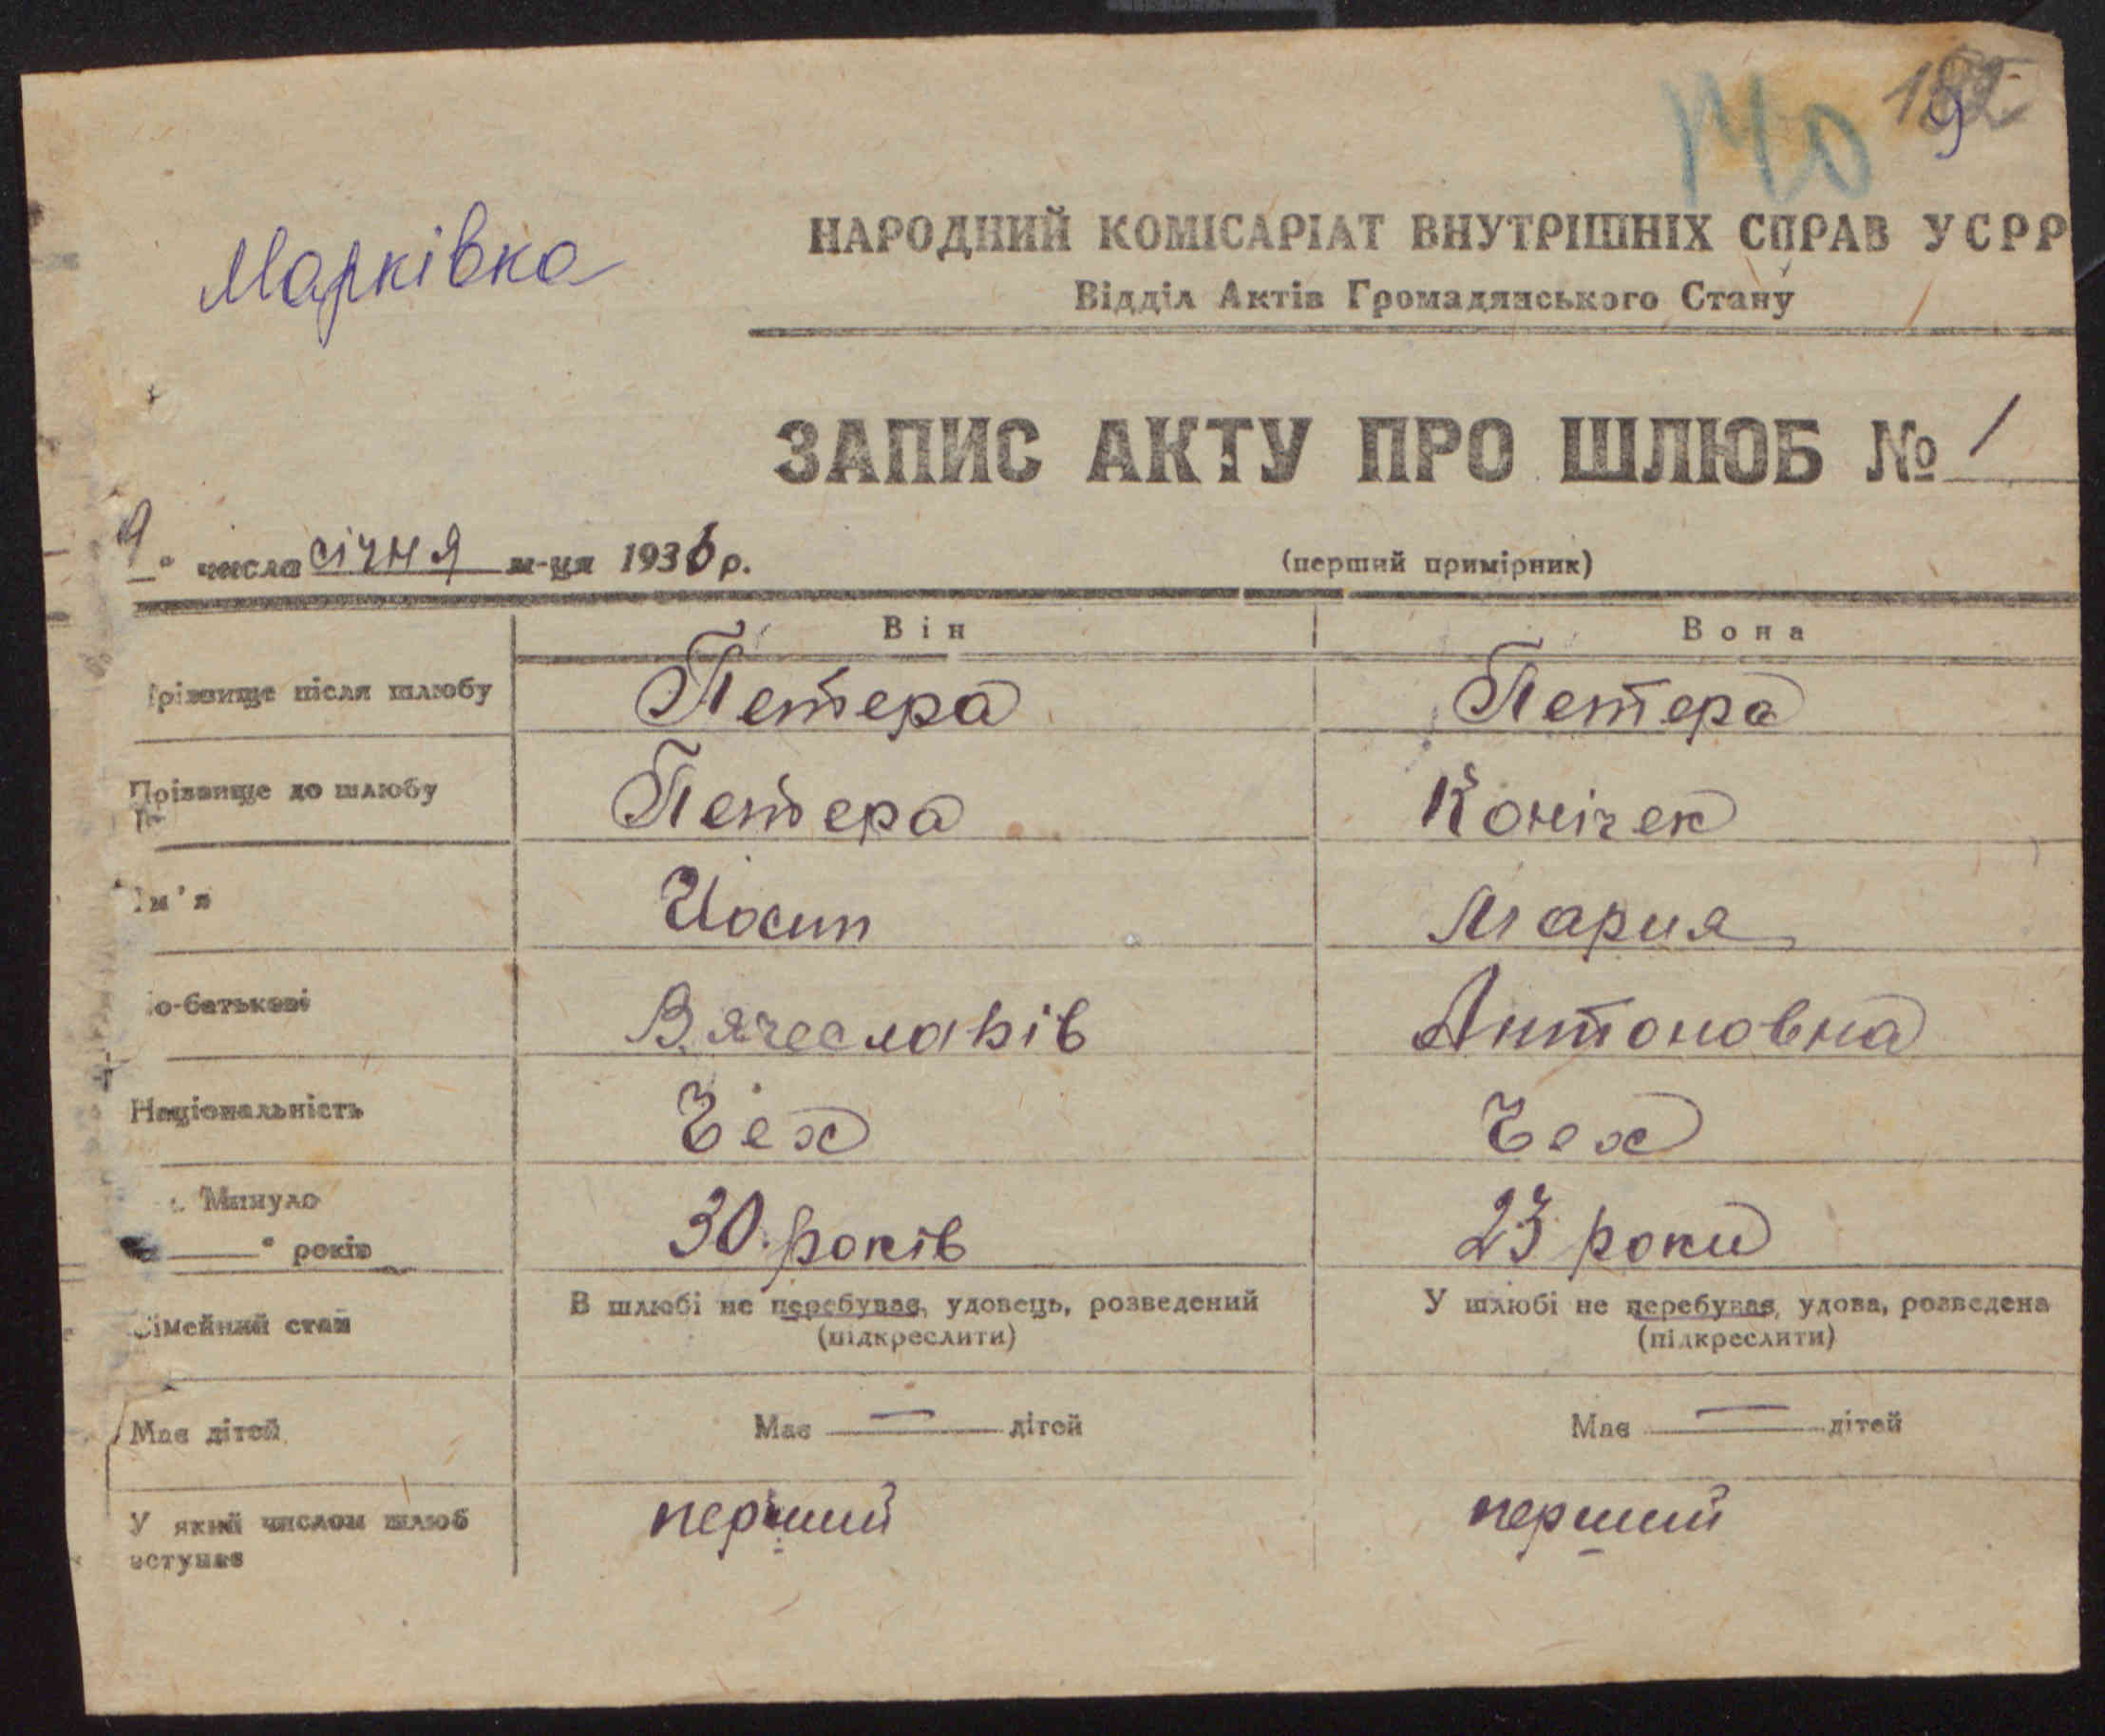 Марківка
НАРОДНИЙ КОМІСАРІАТ ВНУТРІШНІХ СПРАВ УСРР
Відділ Актів Громадянського Стану
ЗАПИС АКТУ ПРО ШЛЮБ № 1
9 числа січня м-ця 1936 р.
(перший примірник)
Він Вона
прізвище після шлюбу Петера Петера
Прізвище до шлюбу Петера Конічек
Ім'я Иосип Мария
о-батькові Вячеславів Антоновна
Національність Чех Чех
Минуло
років 30 років 23 роки
імейний стан В шлюбі не перебував, удовець, розведений У шлюбі не перебувая, удова, розведена
(підкреслити) (підкреслити)
Має дітей Має — дітей Має — дітей
У який числом шлюб перший перший
вступає